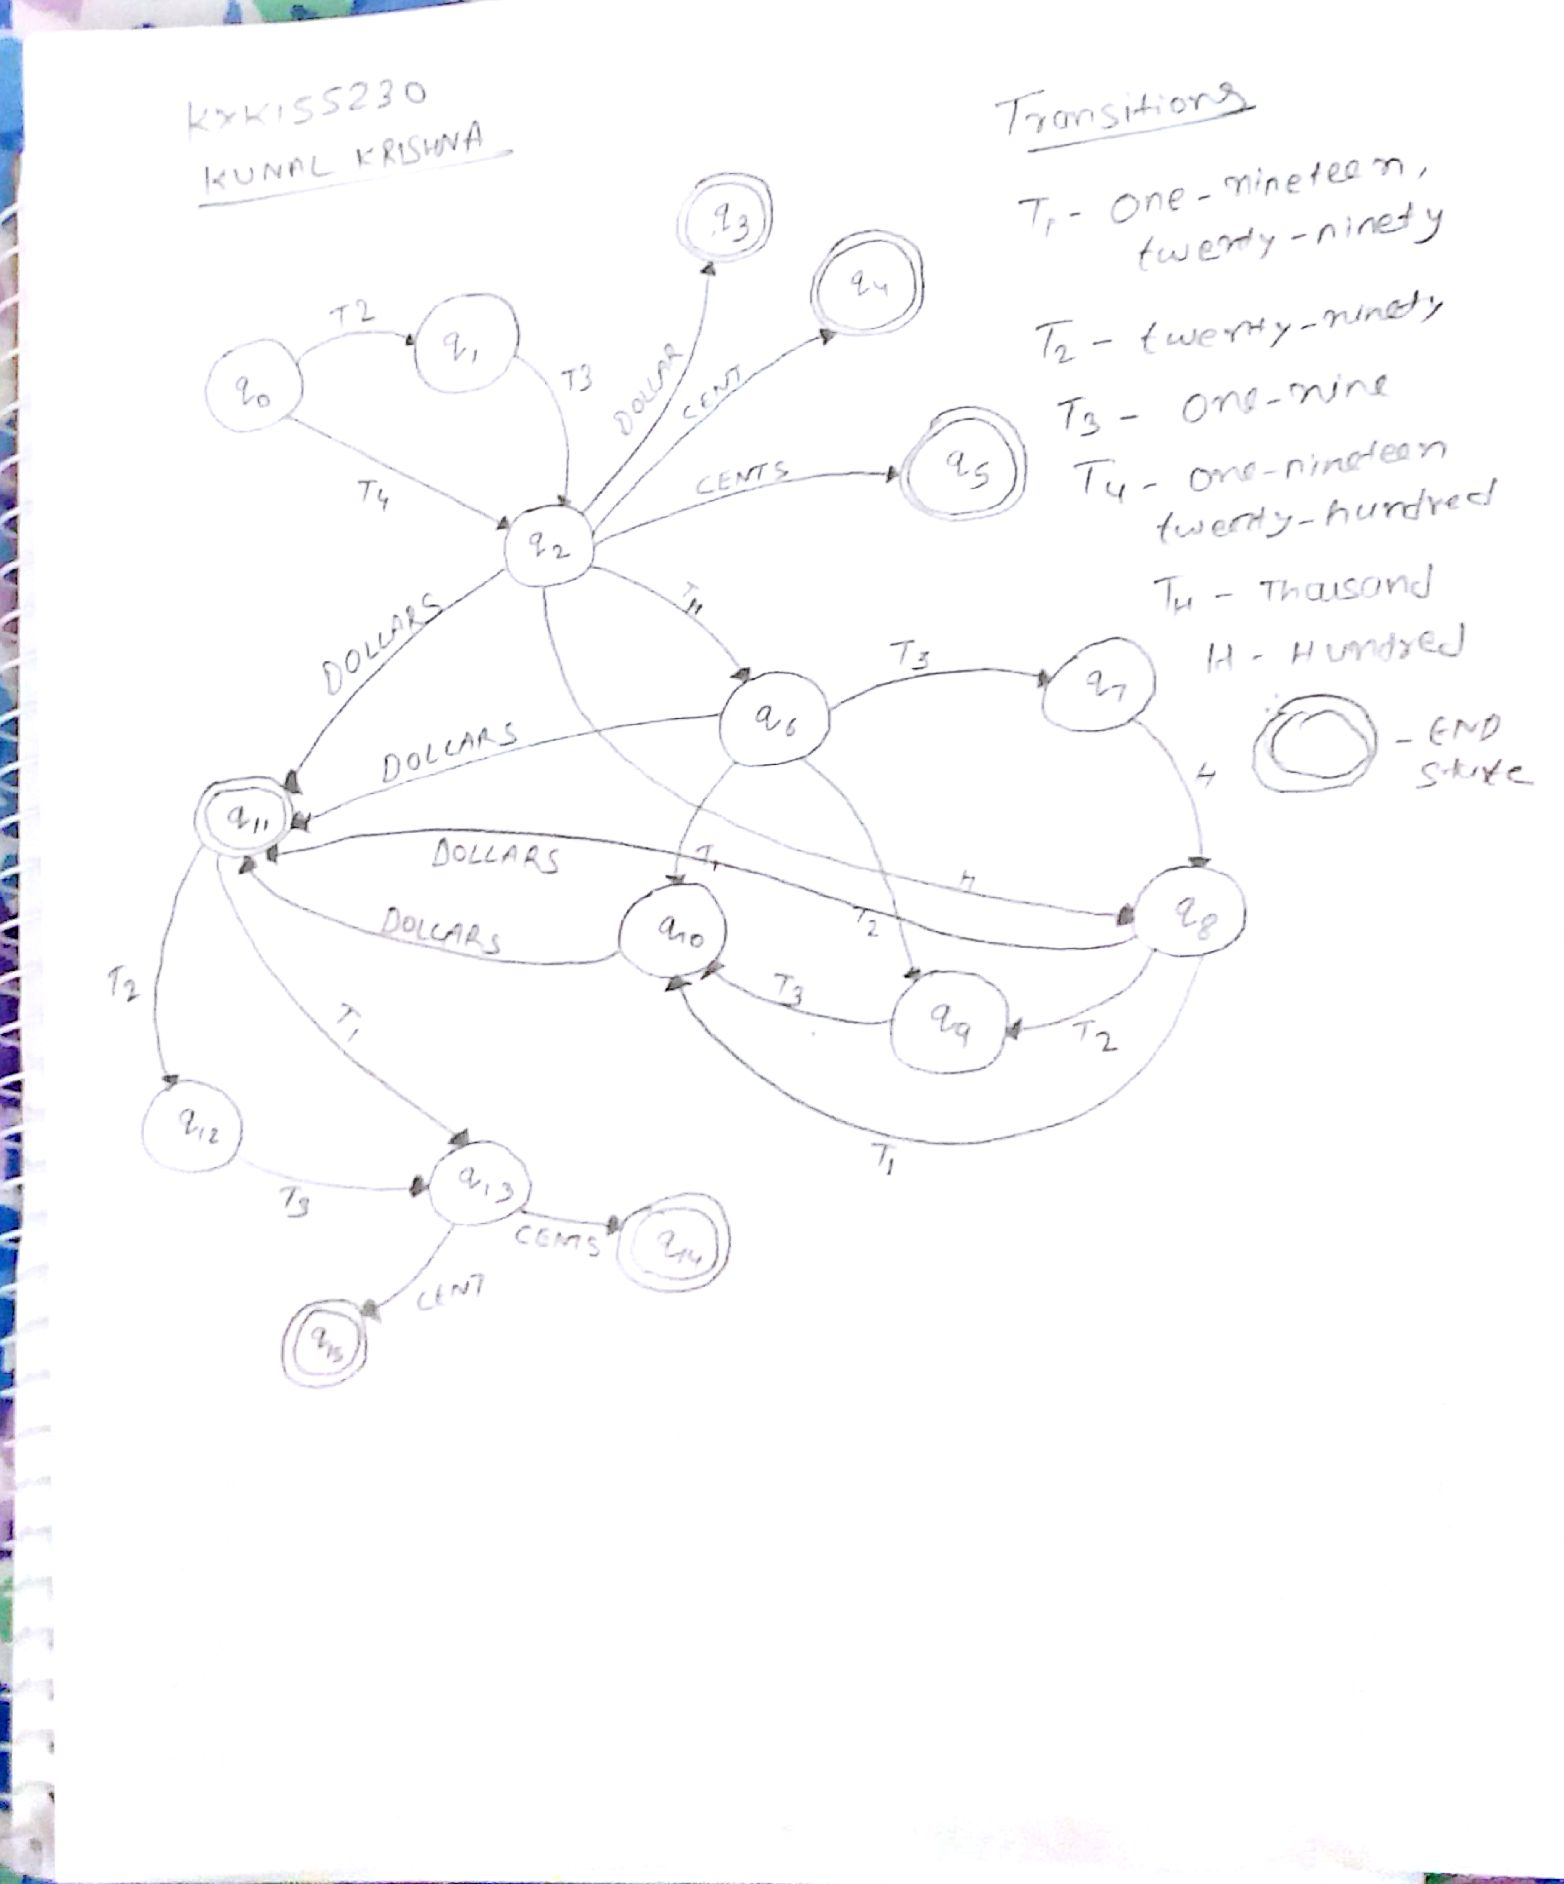 KXK155230
KUNAL KRISHNA
Transitions
T1 - one-nineteen,
twenty-ninety
T2 - twenty-ninety
T3 - one-nine
T4 - one-nineteen
twenty-hundred
TH - Thousand
H - Hundred
- END
state
q3
q4
T2
q1
q0
T3
DOLLAR
CENT
q5
CENTS
T4
q2
TH
DOLLARS
T3
q7
q6
DOLLARS
H
q11
DOLLARS
T1
H
q8
T2
DOLLARS
q10
T3
q9
T2
T2
T1
q12
T1
q13
T3
CENTS
q14
CENT
q15